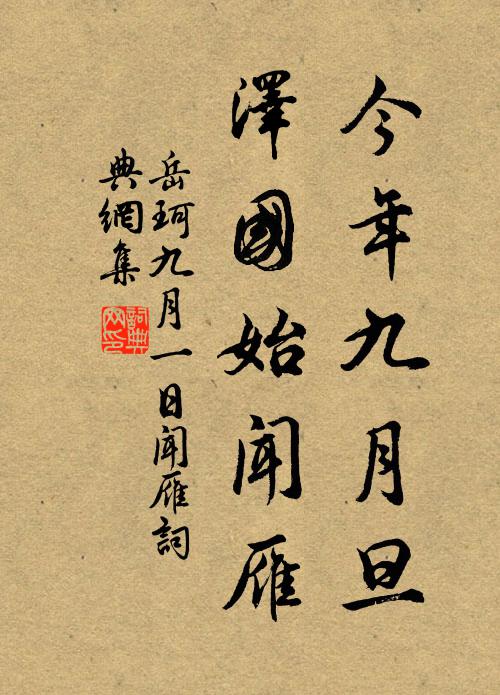 今年九月旦
澤國始聞雁
岳珂九月一日聞雁詞
典網集
詞典网印